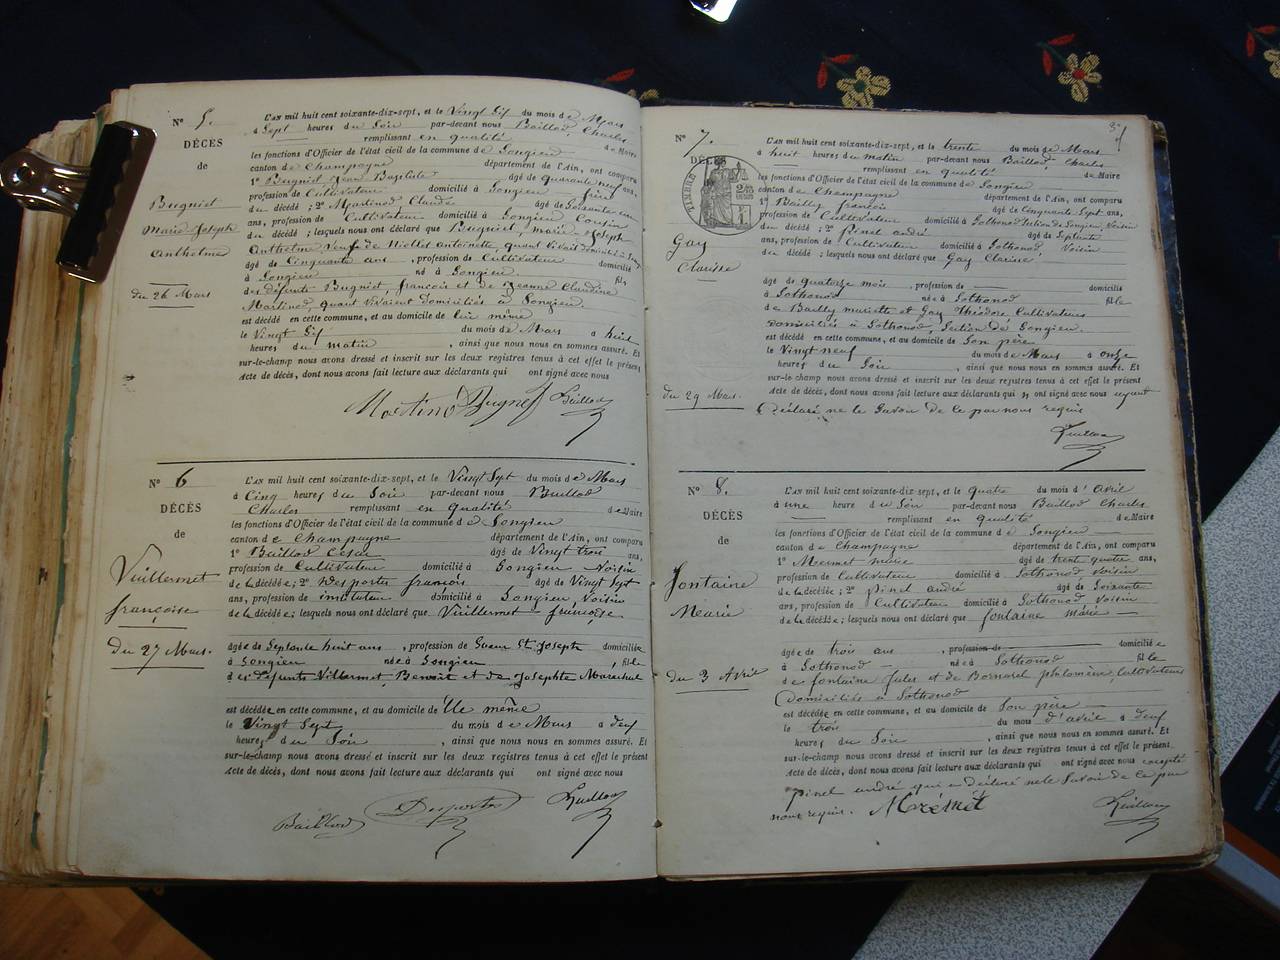 N° 5.
DÉCÈS
de
Bugniet
Marie Joseph
Anthelme
du 26 Mars
L'AN mil huit cent soixante-dix-sept, et le Vingt Six du mois de Mars
à Sept heures du Soir par-devant nous Baillod, Charles
remplissant en qualité de Maire
les fonctions d'Officier de l'état civil de la commune de Songieu
canton de Champagne département de l'Ain, ont comparu
1° Bugniet Jean Baptiste âgé de quarante neuf ans,
profession de Cultivateur domicilié à Songieu frère
du décédé ; 2° Martinod Claude âgé de Soixante un
ans, profession de Cultivateur domicilié à Songieu Cousin
du décédé ; lesquels nous ont déclaré que Bugniet, marie-Joseph
Anthelme Veuf de Niollet antoinette, quant vivait domiciliée à
âgé de Cinquante ans , profession de Cultivateur domicilié
à Songieu né à Songieu fils
des défunts Bugniet, françois et de Jeanne Claudine
Martinod, quant vivaient domiciliés à Songieu
est décédé en cette commune, et au domicile de lui même
le Vingt Six du mois de Mars à huit
heures du matin , ainsi que nous nous en sommes assuré. Et
sur-le-champ nous avons dressé et inscrit sur les deux registres tenus à cet effet le présent
Acte de décès, dont nous avons fait lecture aux déclarants qui ont signé avec nous
Martinod Bugniet Baillod
N° 6
DÉCÈS
de
Vuillermet
françoise
Du 27 Mars.
L'AN mil huit cent soixante-dix-sept, et le Vingt Sept du mois de Mars
à Cinq heures du Soir par-devant nous Baillod
Charles remplissant en qualité de Maire
les fonctions d'Officier de l'état civil de la commune de Songieu
canton de Champagne département de l'Ain, ont comparu
1° Baillod César âgé de Vingt trois ans,
profession de Cultivateur domicilié à Songieu Voisin
de la décédée ; 2° Desportes françois âgé de Vingt Sept
ans, profession de instituteur domicilié à Songieu Voisin
de la décédée ; lesquels nous ont déclaré que Vuillermet françoise
âgée de Septante huit ans , profession de Soeur St. Joseph domiciliée
à Songieu née à Songieu , fille
des défunts Villermet, Benoit et de Josephte Marechal
est décédée en cette commune, et au domicile de Elle même
le Vingt Sept du mois de Mars à deux
heures du Soir , ainsi que nous nous en sommes assuré. Et
sur-le-champ nous avons dressé et inscrit sur les deux registres tenus à cet effet le présent
Acte de décès, dont nous avons fait lecture aux déclarants qui ont signé avec nous
Baillod Desportes Baillod
37
N° 7.
DÉCÈS
TIMBRE
Gay
Clarisse
du 29 Mars.
L'AN mil huit cent soixante-dix-sept, et le trente du mois de Mars
à huit heures du matin par-devant nous Baillod, Charles
remplissant en qualité de Maire
les fonctions d'Officier de l'état civil de la commune de Songieu
canton de Champagne département de l'Ain, ont comparu
1° Bailly françois âgé de Cinquante Sept ans,
profession de Cultivateur domicilié à Sothonod Section de Songieu, Voisin
du décédé ; 2° Pinel andré âgé de Septante
ans, profession de Cultivateur domicilié à Sothonod, Voisin
du décédé ; lesquels nous ont déclaré que Gay Clarisse
âgé de quatorze mois , profession de domicilié
à Sothonod née à Sothonod fille
de Bailly mariette et Gay Théodore Cultivateurs
domiciliés à Sothonod, Section de Songieu.
est décédé en cette commune, et au domicile de Son père
le Vingt neuf du mois de Mars à onze
heures du Soir , ainsi que nous nous en sommes assuré. Et
sur-le champ nous avons dressé et inscrit sur les deux registres tenus à cet effet le présent
Acte de décès, dont nous avons fait lecture aux déclarants qui n' ont signé avec nous ayant
Déclaré ne le Savoir de ce par nous requis
Baillod
N° 8.
DÉCÈS
de
Fontaine
Marie
du 3 Avril
L'AN mil huit cent soixante-dix sept, et le quatre du mois d'avril
à une heure du Soir par-devant nous Baillod Charles
remplissant en qualité de Maire
les fonctions d'Officier de l'état civil de la commune de Songieu
canton de Champagne département de l'Ain, ont comparu
1° Mermet marie âgé de trente quatre ans,
profession de Cultivateur domicilié à Sothonod Voisin
de la décédée ; 2° Pinel andré âgé de Soixante
ans, profession de Cultivateur domicilié à Sothonod Voisin
de la décédée ; lesquels nous ont déclaré que fontaine marie
âgée de trois ans , profession de domiciliée
à Sothonod née à Sothonod fille
de fontaine Jules et de Bornarel philomène, Cultivateurs
Domiciliés à Sothonod
est décédée en cette commune, et au domicile de Son père
le trois du mois d'avril à deux
heures du Soir , ainsi que nous nous en sommes assuré. Et
sur-le-champ nous avons dressé et inscrit sur les deux registres tenus à cet effet le présent
Acte de décès, dont nous avons fait lecture aux déclarants qui ont signé avec nous excepté
Pinel andré qui a déclaré ne le Savoir de ce par
nous requis. Mermet Baillod